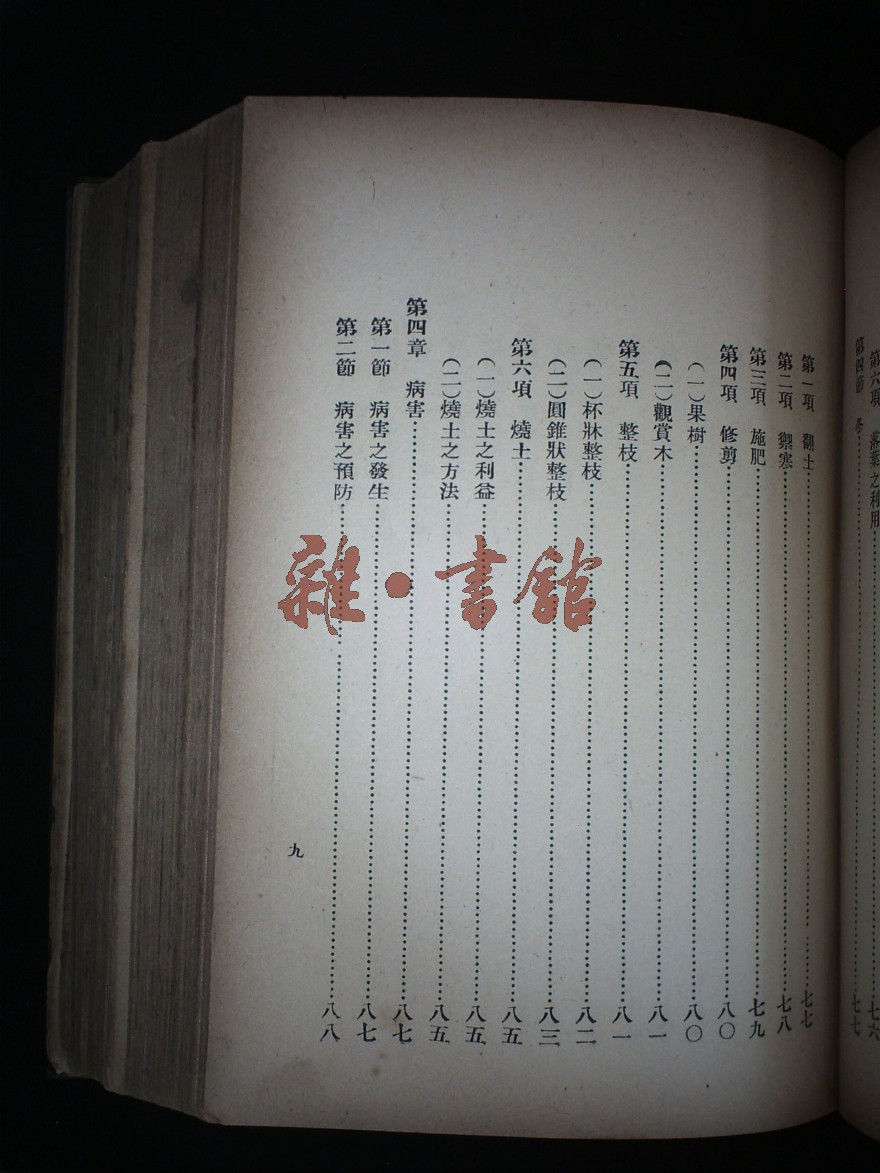 第六項　落葉之利用……七六
第四節　冬……七七
第一項　翻土……七七
第二項　禦寒……七八
第三項　施肥……七九
第四項　修剪……八〇
（一）果樹……八〇
（二）觀賞木……八一
第五項　整枝……八一
（一）杯狀整枝……八二
（二）圓錐狀整枝……八三
第六項　燒土……八五
（一）燒土之利益……八五
（二）燒土之方法……八五
第四章　病害……八七
第一節　病害之發生……八七
第二節　病害之預防……八八
九
雜·書館